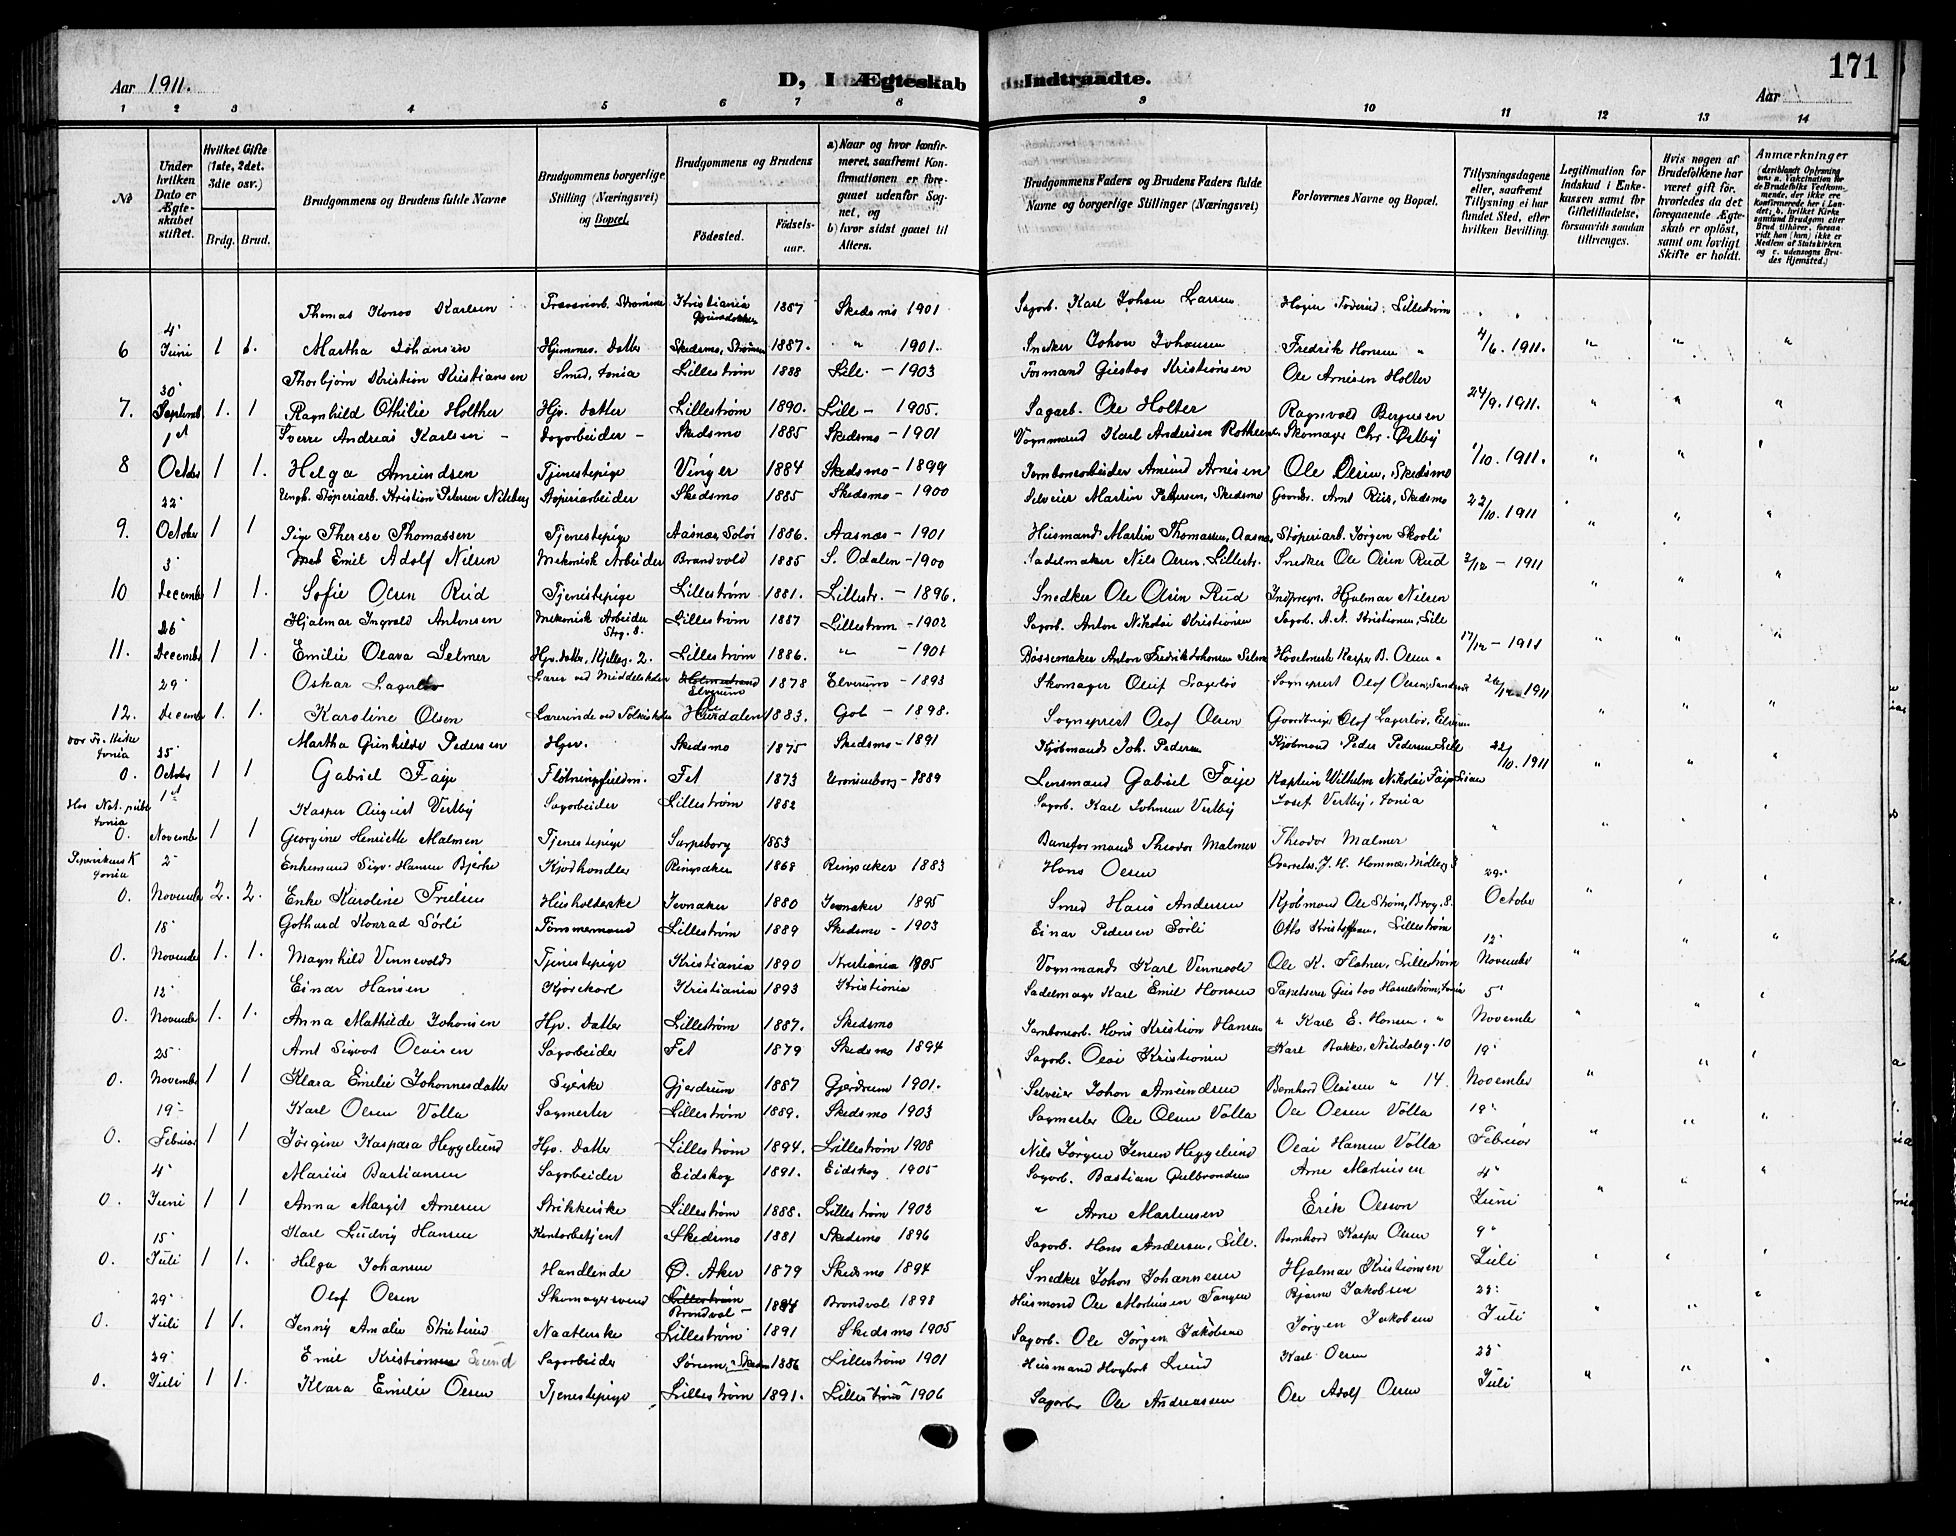 171
Aar 1911.
D, I Ægteskab Indtraadte.
Aar
1 2 3 4 5 6 7 8 9 10 11 12 13 14
№
Under hvilken Dato er Ægteskabet stiftet.
Hvilket Gifte (1ste, 2det, 3die osv.)
Brdg. Brud.
Brudgommens og Brudens fulde Navne
Brudgommens borgerlige Stilling (Næringsvei) og Bopæl.
Brudgommens og Brudens
Födested.
Födsels-aar.
a) Naar og hvor konfirmeret, saafremt Konfirmationen er foregaaet udenfor Sognet, og
b) hvor sidst gaaet til Alters.
Brudgommens Faders og Brudens Faders fulde Navne og borgerlige Stillinger (Næringsvei)
Forlovernes Navne og Bopæl.
Tillysningsdagene eller, saafremt Tillysning ei har fundet Sted, efter hvilken Bevilling.
Legitimation for Indskud i Enkekassen samt for Giftetilladelse, forsaavidt saadan tiltrænges.
Hvis nogen af Brudefolkene har været gift før, hvorledes da det foregaaende Ægteskab er oplöst, samt om lovligt Skifte er holdt.
Anmærkninger
(deriblandt Oplysning om: a. Vakcination for de Brudefolks Vedkommende, der ikke ere konfirmerede her i Landet; b. hvilket Kirkesamfund Brudgom eller Brud tilhörer, forsaavidt han (hun) ikke er Medlem af Statskirken og c. udensogns Brudes Hjemsted.)
Thomas Karlsen Kristiania 1887 Skedsmo 1901 Sagarb. Karl Johan Larsen Lillestrøm
6 4' Juni 1 1. Martha Johansen Hjemmev. Datter Skedsmo, Strømmen 1887. " 1901. Snedker Johan Johansen Fredrik Hansen " 4/6. 1911. " " "
Thorbjørn Kristian Kristiansen Smed, Lillestrøm 1888 Lill. - 1903 Formand Gustav Kristiansen Ole Arnesen Holter
7. 30' Septemb 1. 1 Ragnhild Othilie Holther Hjv. Datter Lillestrøm 1890. Lill - 1905. Sagarb. Ole Holter Ragnvald Bergersen 24/9. 1911. " " "
Sverre Andreas Karlsen - - Skedsmo 1885 Skedsmo - 1901 Vognmand Karl Andersen Skomager Chr. Østby
8 1st October 1 1. Helga Amundsen Tjenestepige Vinger 1884 Skedsmo - 1899 Jernbanearbeider Amund Arnesen Ole Olsen, Skedsmo 1/10. 1911. " " "
Ungk. Støperiarb. Kristian Petersen Niteberg Støperiarbeider Skedsmo 1885 Skedsmo - 1900 Selveier Martin Petersen, Skedsmo Gaardbr. Arnt Riis, Skedsmo
9. 22' October 1 1 Pige Therese Thomassen Tjenestepige Aasnæs, Solør 1886. Aasnæs - 1901 Husmand Martin Thomassen, Aasnæs Støperiarb. Jørgen Skoali 22/10. 1911 " " "
Mek Emil Adolf Nilsen Mekanisk Arbeider Brandvold 1885 S. Odalen - 1900 Sadelmaker Nils Olsen, Lillestr. Snedker Ole Olsen Rud
10 3' December 1 1. Sofie Olsen Rud Tjenestepige Lillestrøm 1881. Lillestr. - 1896. Snedker Ole Olsen Rud Hjalmar Nilsen 3/12 - 1911 " " "
Hjalmar Ingvald Antonsen Mekanisk Arbeider Stog. 8. Lillestrøm 1887 Lillestrøm - 1902 Sagarb. Anton Nikolai Kristiansen Sagarb. A. A. Kristiansen, Lille
11. 26' December 1 1. Emilie Olava Selmer Hjv. Datter, 2. Lillestrøm 1886. " - 1901 Bøssemaker Anton Fredrik Johansen Selmer Høvelmester Kasper B. Olsen " 17/12 - 1911 " " "
Oskar Lagerløv Lærer ved Middelskolen Elverum 1878 Elverum - 1893 Skomager Oluf Lagerløv Sogneprest Olof Olsen,
12. 29' December 1. 1. Karoline Olsen Lærerinde ved Folkeskolen 1883. Gol - 1898. Sogneprest Olof Olsen Gaardbrug. Olof Lagerløv, Elverum 26/12 1911 " " "
vor Fr. Kirke
Martha Gunhilde Pedersen Hjv. Skedsmo 1875 Skedsmo - 1891 Kjøbmand Joh. Pedersen Kjøbmand Peder Pedersen Lille
0. 25' October 1 1 Gabriel Faije Fet 1873 Uranienborg - 1889 Lensmand Gabriel Faije Kaptein Wilhelm Nikolai Faije 22/10. 1911 " " "
Hos Not. publ.
Kasper August Vestby Sagarbeider Lillestrøm 1882 Sagarb. Karl Johnsen Vestby Josef Vestby,
0. 1st November 1 1 Georgine Henriette Malmen Tjenestepige Sarpsborg 1883 Baneformand Theodor Malmer Theodor Malmer " " "
Enkemand Sigv. Hansen Bjerke Kjødhandler Ringsaker 1868 Ringsaker 1883 Hans Olsen
0. 2' November 2. 2. Enke Karoline Husholderske Jevnaker 1880 Jevnaker 1895 Smed Hans Andersen Kjøbmand Ole Strøm, Brog. 8. 29' October " " "
Gothard Konrad Sørli Tømmermand Lillestrøm 1889 Skedsmo - 1903 Einar Pedersen Sørli Otto Kristoffersen, Lillestrøm
0. 18' November 1. 1. Magnhild Vennevold Tjenestepige Kristiania 1890 Kristiania 1905 Vognmand Karl Vennevold Ole K. Flatner, Lillestrøm 12' November " " "
Einar Hansen Kjørekarl Kristiania 1893 Kristiania Sadelmager Karl Emil Hansen Tapetserer Gustav
0. 12' November 1. 1. Anna Mathilde Johansen Hjv. Datter Lillestrøm 1887. Skedsmo Jernbanearb. Hans Kristian Hansen " Karl E. Hansen " 5' November " " "
Arnt Sigvat Olaisen Sagarbeider Fet 1879 Skedsmo 1894 Sagarb. Olai Kristiansen Karl Bakke, Nitedalsg. 10
0. 25' November 1 1 Klara Emilie Johannesdatter Syerske Gjerdrum 1887 Gjerdrum 1901. Selveier Johan Amundsen Bernhard Olaisen " 14. 19' November " " "
Karl Olsen Volla Sagmester Lillestrøm 1889. Skedsmo 1903 Sagmester Ole Olsen Volla Ole Olsen Volla
0. 19' Februar 1 1 Jørgine Kaspara Heggelund Hjv. Datter Lillestrøm 1894. Lillestrøm 1908 Nils Jørgen Jensen Heggelund Olai Hansen Volla 19' Februar " " "
Marius Bastiansen Sagarbeider Eidskog 1891. Eidskog 1905 Sagarb. Bastian Gulbrandsen Arne Martinsen
0. 4' Juni 1 1 Anna Margit Arnesen Strikkerske Lillestrøm 1888. Lillestrøm 1902 " Arne Martinsen Erik Olsson 4' Juni " " "
Karl Ludvig Hansen Kontorbetjent Skedsmo 1881 Skedsmo 1896 Sagarb. Hans Andersen, Lille. Bernhard Kasper Olsen
0. 15' Juli 1 1. Helga Johansen Handlende Ø. Aker 1879 Skedsmo 1894 Snedker Johan Johannesen Hjalmar Kristiansen 9' Juli " " "
Olof Olsen Skomagersvend Lillestrøm Brandval - 1884 Brandval 1898 Husmand Ole Mortensen Tangen Bjarne Jakobsen
0. 29' Juli 1 1. Jenny Amalie Naatlerske Lillestrøm 1891 Skedsmo 1905 Sagarb. Ole Jørgen Jakobsen Jørgen Jakobsen 23' Juli " " "
Emil Kristiansen Lund Sagarbeider Sørum, 1886 Lillestrøm 1901 Husmand Lund Karl Olsen
0. 29' Juli 1 1. Klara Emilie Olsen Tjenestepige Lillestrøm 1891. Lillestrøm 1906 Sagarb. Ole Andreassen Ole Adolf Olsen 23' Juli " " "